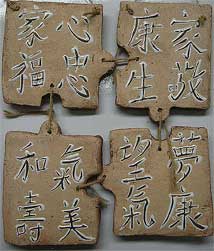 心忠
家福
家敬
康生
氣美
和壽
夢康
望氣